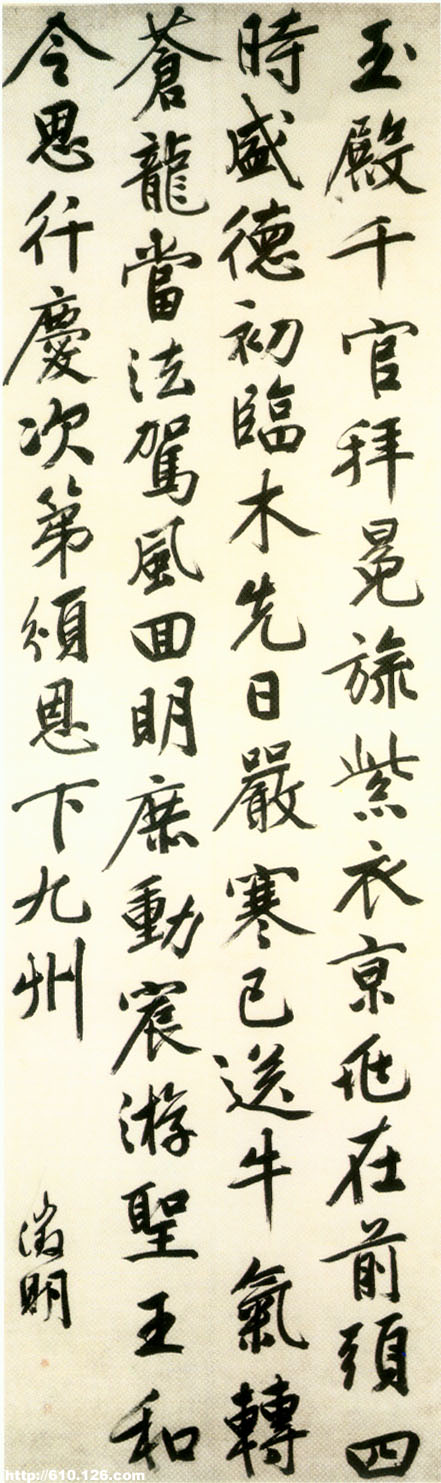 玉殿千官拜冕旒紫衣京兆在前頭四
時盛德初臨木先日嚴寒已送牛氣轉
蒼龍當法駕風回明庶動宸游聖王和
令思行慶次第頒恩下九州
徵明
http://610.126.com